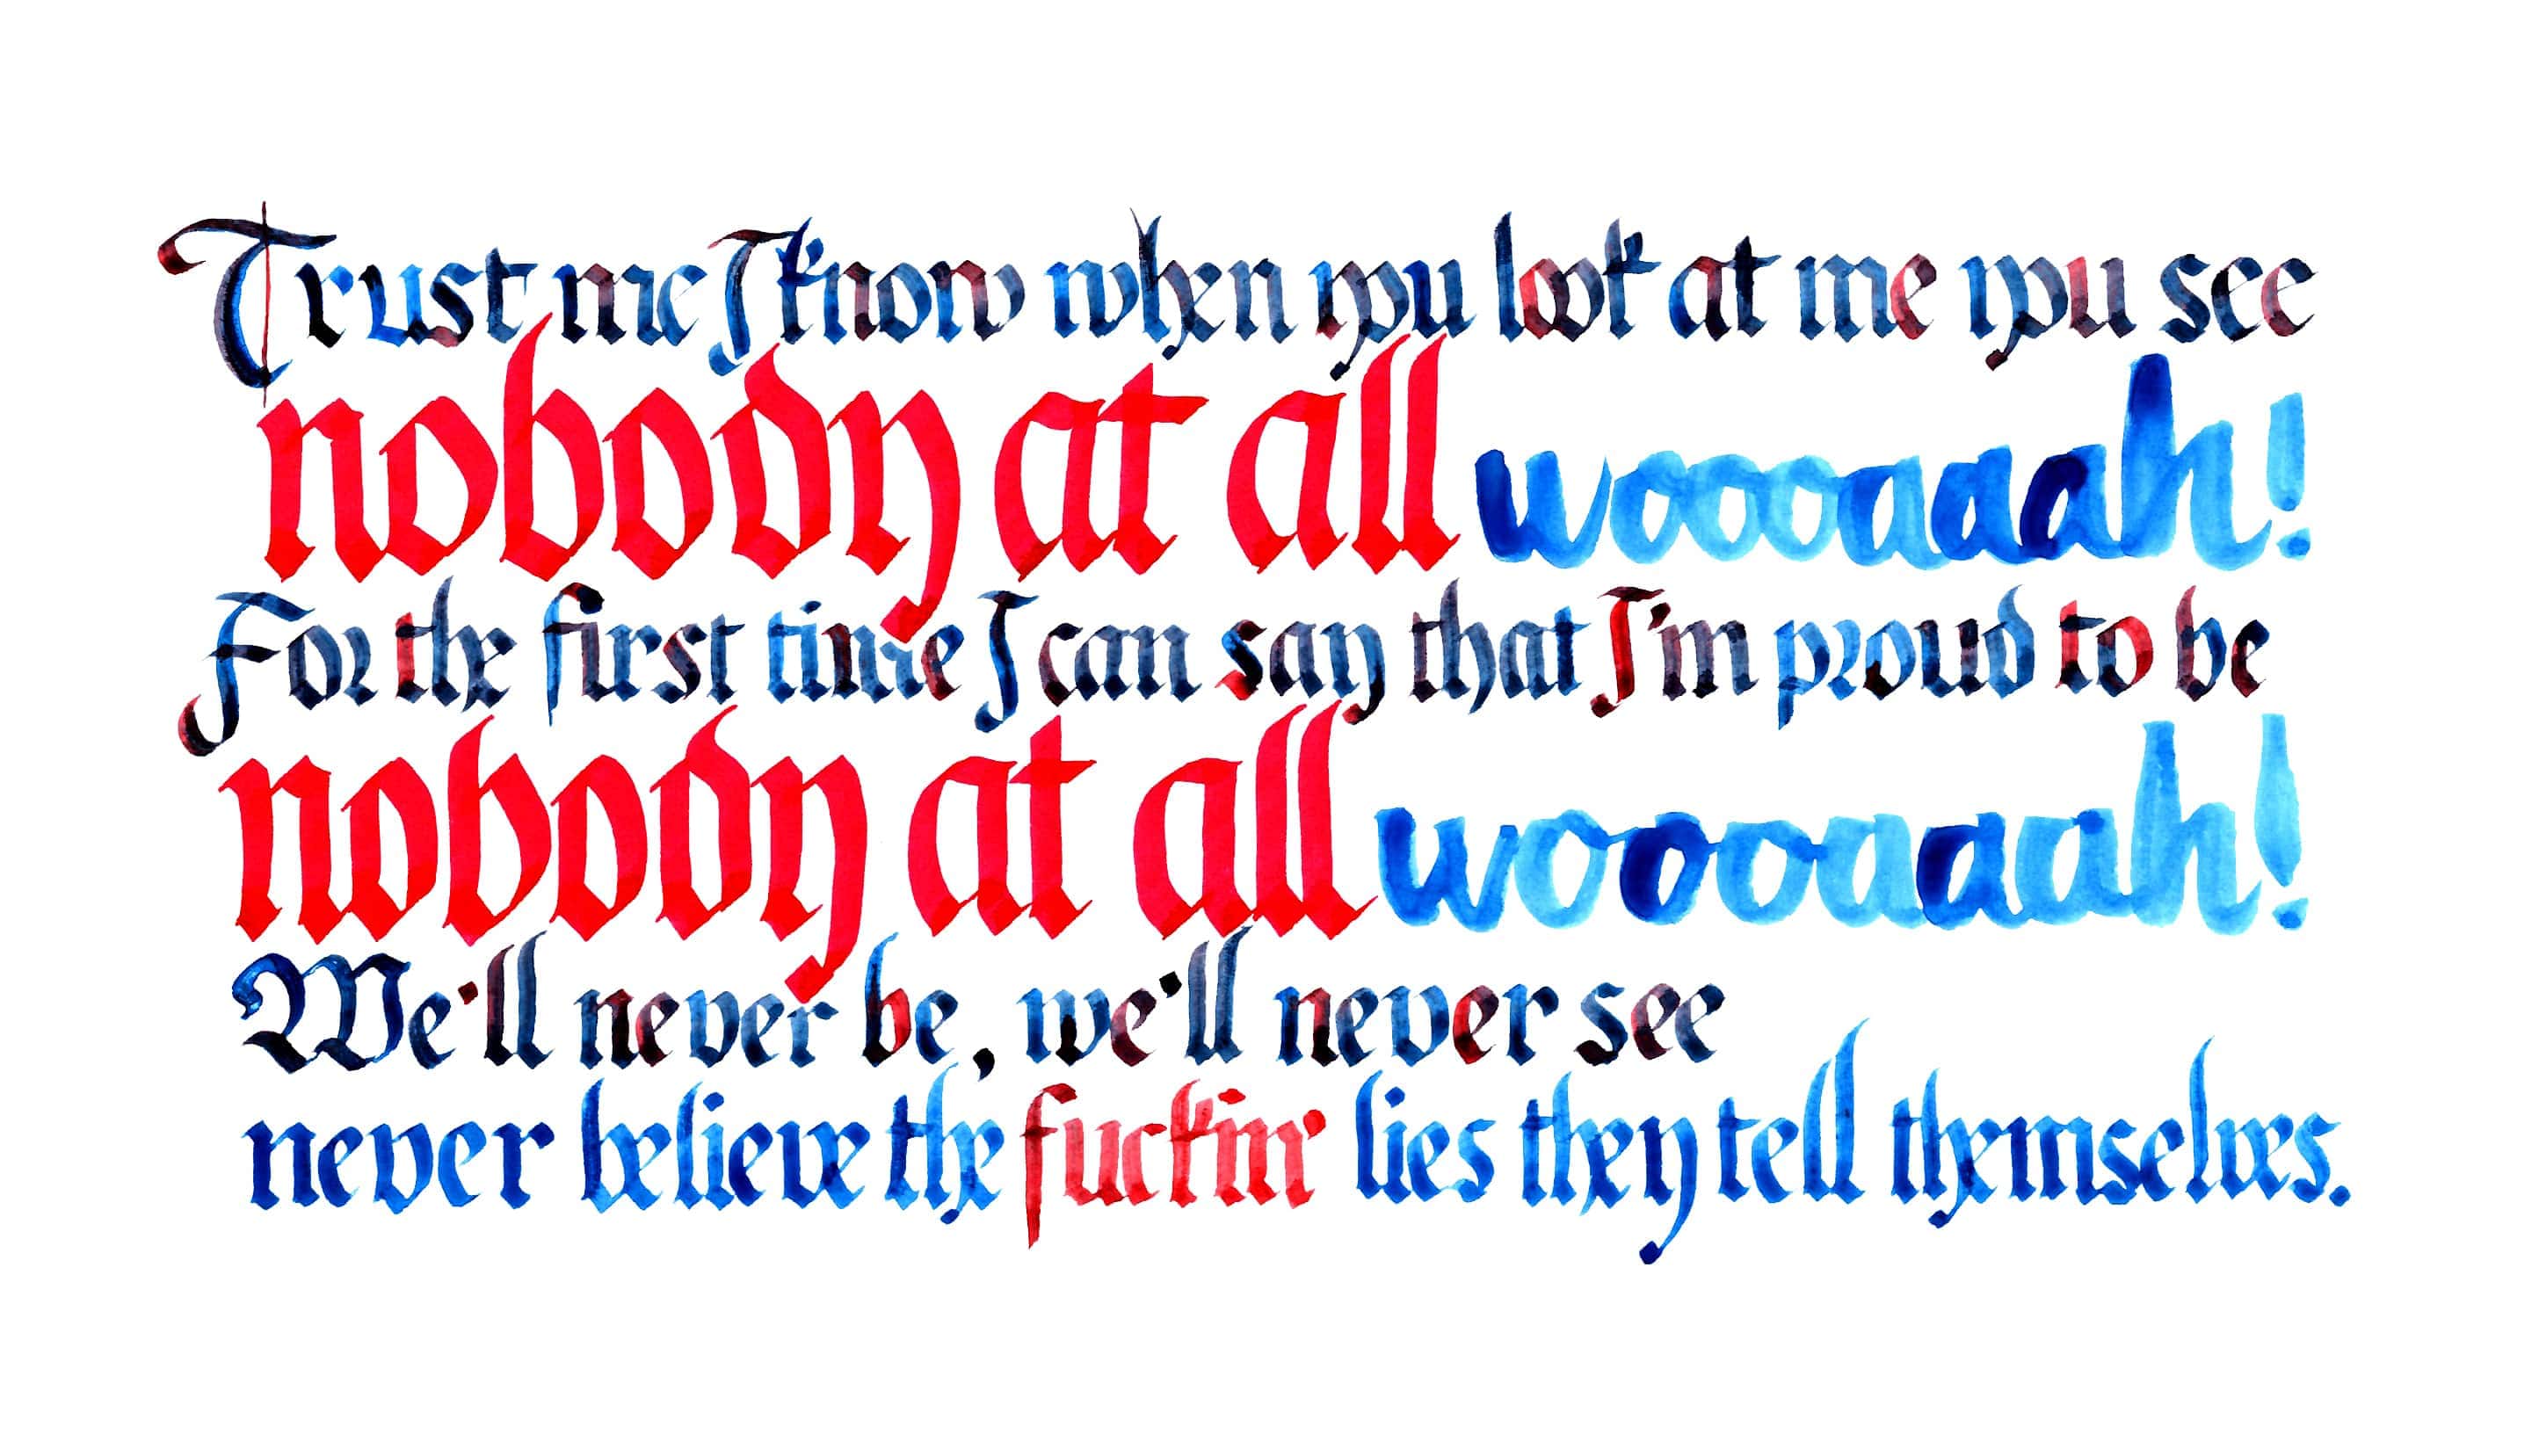 Trust me I know when you look at me you see
nobody at all woooaaah!
For the first time I can say that I'm proud to be
nobody at all woooaaah!
We'll never be, we'll never see
never believe the fuckin' lies they tell themselves.